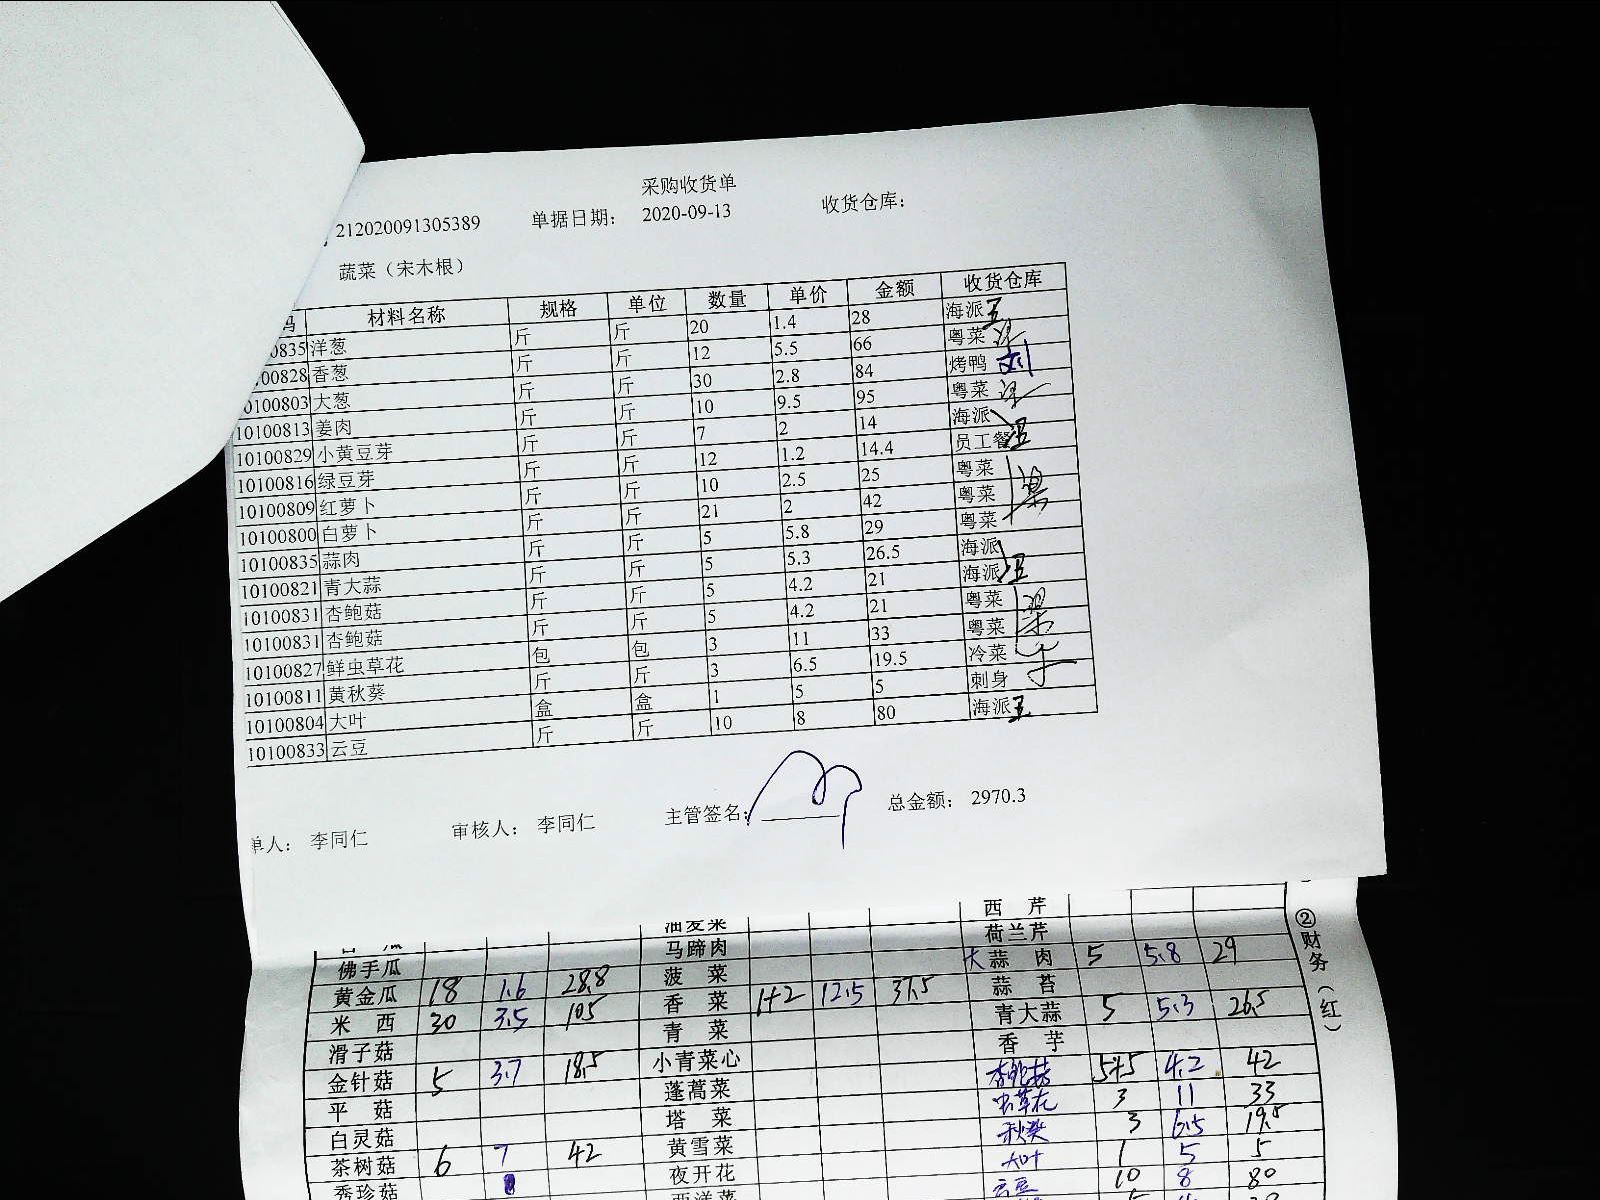 采购收货单
212020091305389 单据日期： 2020-09-13 收货仓库：
蔬菜（宋木根）
码 材料名称 规格 单位 数量 单价 金额 收货仓库
0835 洋葱 斤 斤 20 1.4 28 海派 王
00828 香葱 斤 斤 12 5.5 66 粤菜
0100803 大葱 斤 斤 30 2.8 84 烤鸭 刘
10100813 姜肉 斤 斤 10 9.5 95 粤菜
10100829 小黄豆芽 斤 斤 7 2 14 海派
10100816 绿豆芽 斤 斤 12 1.2 14.4 员工餐
10100809 红萝卜 斤 斤 10 2.5 25 粤菜
10100800 白萝卜 斤 斤 21 2 42 粤菜
10100835 蒜肉 斤 斤 5 5.8 29 粤菜
10100821 青大蒜 斤 斤 5 5.3 26.5 海派
10100831 杏鲍菇 斤 斤 5 4.2 21 海派
10100831 杏鲍菇 斤 斤 5 4.2 21 粤菜
10100827 鲜虫草花 包 包 3 11 33 粤菜
10100811 黄秋葵 斤 斤 3 6.5 19.5 冷菜
10100804 大叶 盒 盒 1 5 5 刺身
10100833 云豆 斤 斤 10 8 80 海派 王
单人： 李同仁 审核人： 李同仁 主管签名： 总金额： 2970.3
油麦菜 西芹
马蹄肉 荷兰芹
佛手瓜 菠菜 大蒜肉 5 5.8 29
黄金瓜 18 1.6 28.8 香菜 1+2 12.5 37.5 蒜苔
米西 30 3.5 105 青菜 青大蒜 5 5.3 26.5
滑子菇 小青菜心 香芋
金针菇 5 3.7 18.5 蓬蒿菜 杏鲍菇 5+5 4.2 42
平菇 塔菜 虫草花 3 11 33
白灵菇 黄雪菜 秋葵 3 6.5 19.5
茶树菇 6 7 42 夜开花 大叶 1 5 5
秀珍菇 西洋菜 云豆 10 8 80
②财务（红）